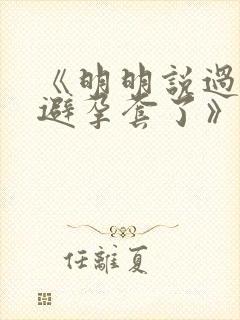 《明明說過
避孕套了》
任離夏